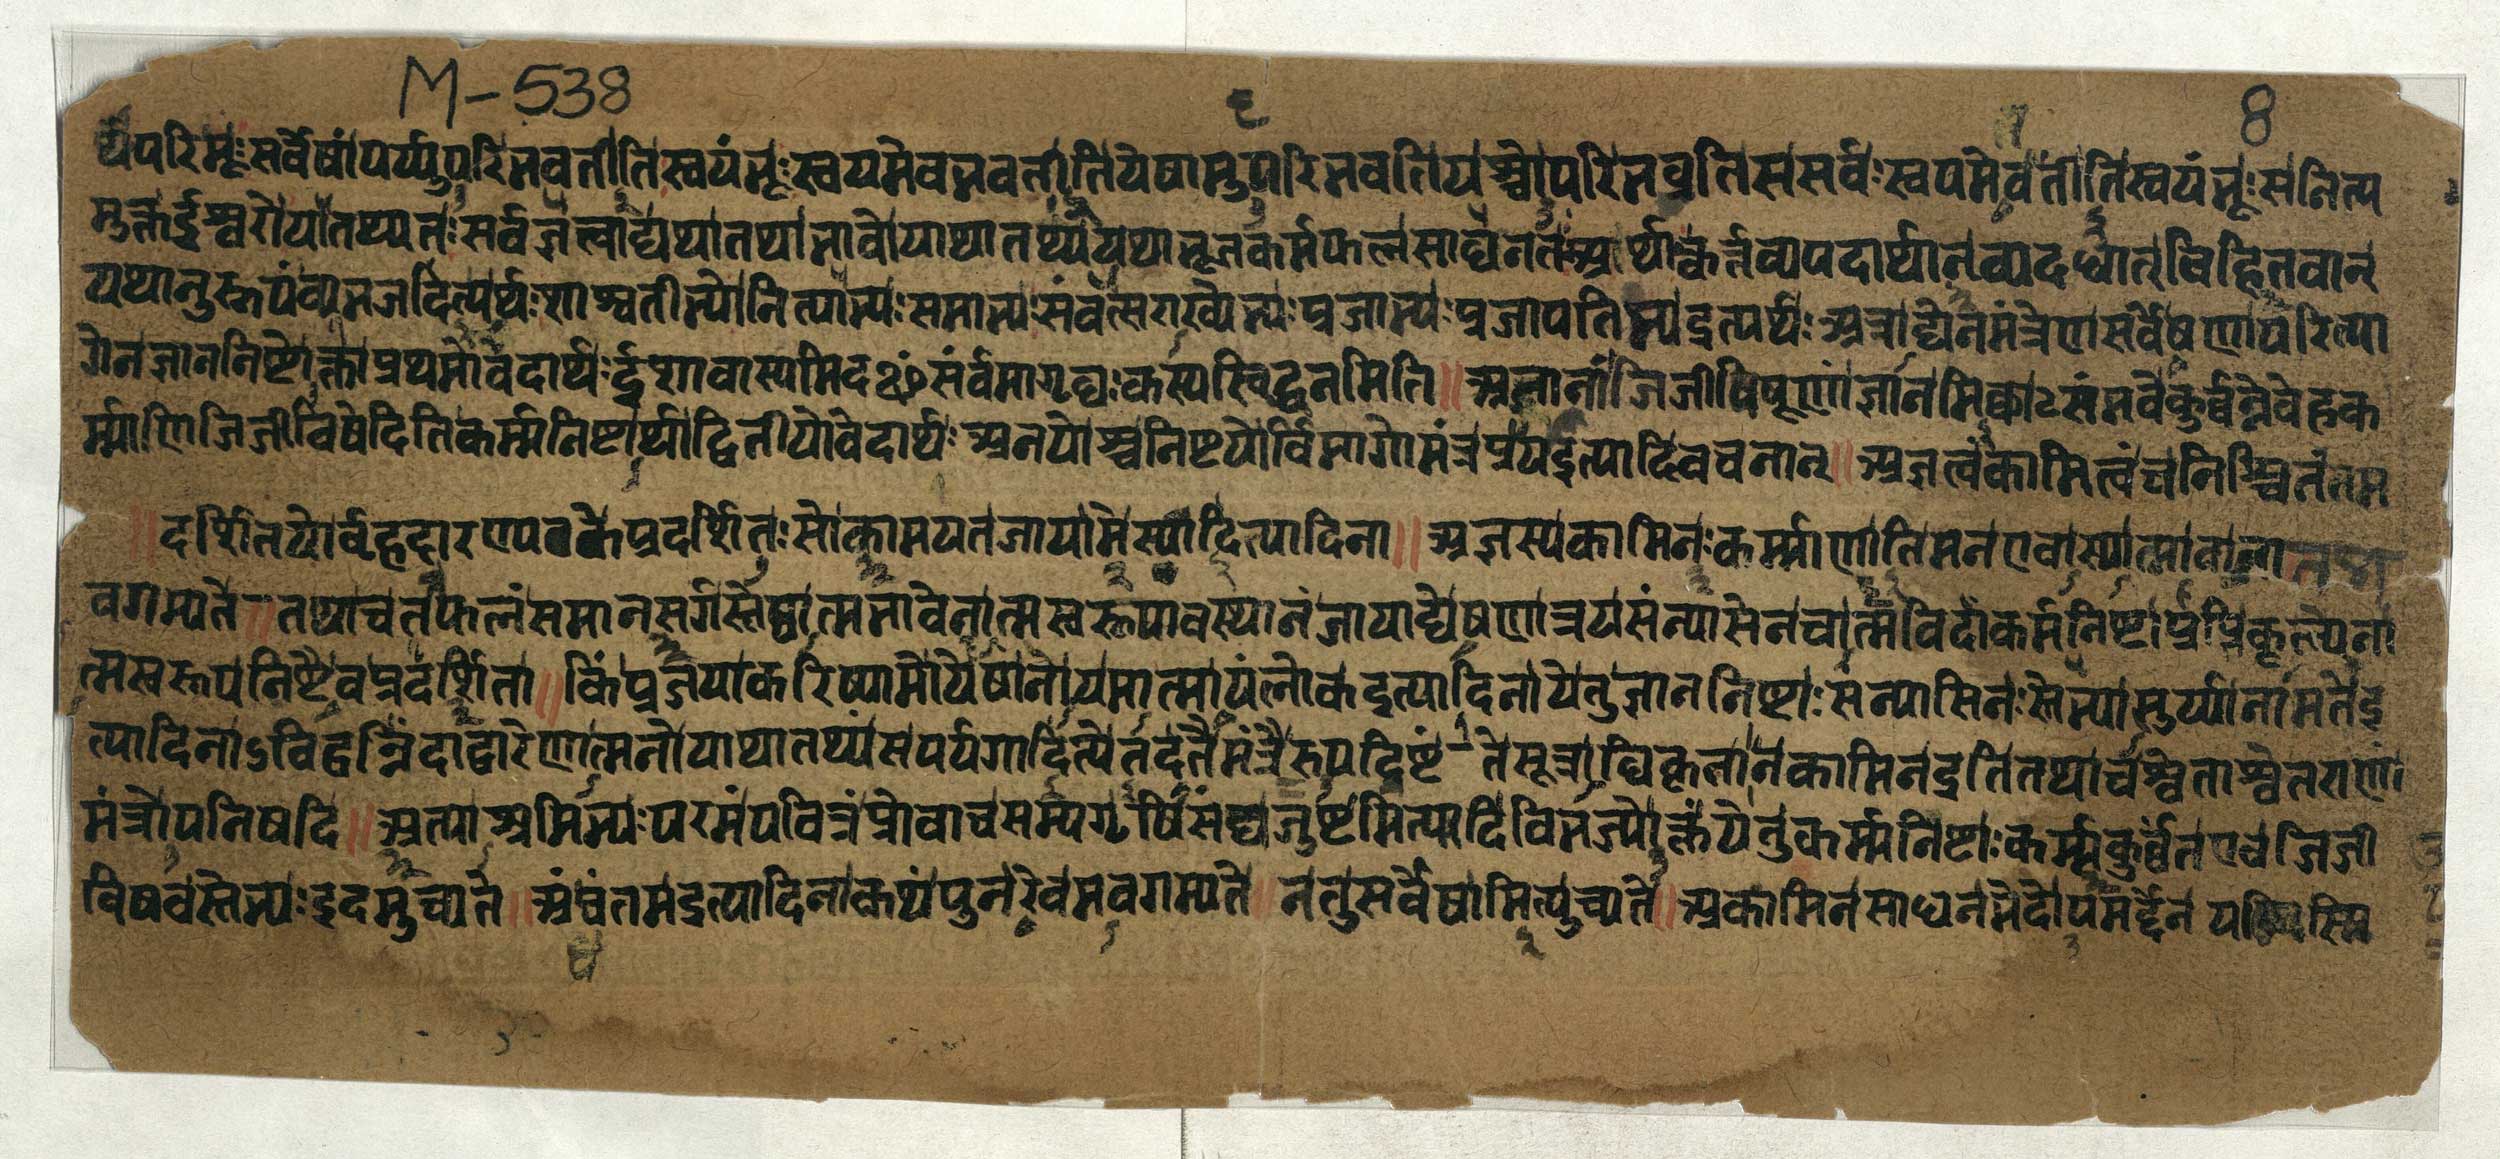 M-538
८ 8
र्थः परिभूः सर्वेषां पर्य्युपरि भवतीति स्वयंभूः स्वयमेव भवतीति येषामुपरि भवति यश्चोपरि भवति स सर्वः स्वयमेव भवतीति स्वयंभूः स नित्य
मुक्त ईश्वरो याथातथ्यतः सर्वज्ञत्वाद्यथातथाभावो याथातथ्यं यथाभूतकर्मफलसाधनतः अर्थान् कर्त्तव्यपदार्थान् व्यदधात् विहितवान्
यथानुरूपं व्यभजदित्यर्थः शाश्वतीभ्यो नित्याभ्यः समाभ्यः संवत्सराख्येभ्यः प्रजाभ्यः प्रजापतिभ्य इत्यर्थः अत्राद्येन मंत्रेण सर्वेषणापरित्या
गेन ज्ञाननिष्टोक्ता प्रथमो वेदार्थः ईशावास्यमिदꣳ सर्वं मा गृधः कस्य स्विद्धनमिति ॥ अज्ञानां जिजीविषूणां ज्ञाननिष्टाऽसंभवे कुर्वन्नेवेह क
र्म्माणि जिजीविषेदिति कर्म्मनिष्टार्थो द्वितीयो वेदार्थः अनयोश्च निष्टयोर्विभागो मंत्रप्रय इत्यादिवचनात् ॥ अज्ञत्वं कामित्वं च निश्चितं तम
॥ दर्शितयोर्बृहदारण्यके प्रदर्शितः सोकामयत जाया मे स्यादित्यादिना ॥ अज्ञस्य कामिनः कर्म्माणीति मन एवास्यात्मा वा
वगम्यते ॥ तथा च तत्फलं समानसर्गस्तेष्वात्मभावेनात्मस्वरूपावस्थानं जायाद्येषणात्रयसंन्यासेन चात्मविदां कर्मनिष्टाप्रातिकूल्येना
त्मस्वरूपनिष्टैव प्रदर्शिता ॥ किं प्रजया करिष्यामो येषां नोयमात्मायं लोक इत्यादिना ये तु ज्ञाननिष्टाः सन्यासिनः तेभ्यो सुर्य्या नाम ते इ
त्यादिनाऽविद्वन्निंदाद्वारेणात्मनो याथातथ्यं स पर्यगादित्येतदंतैर्मंत्रैरुपदिष्टं ते सूत्राधिकृता न कामिन इति तथा च श्वेताश्वेतराणां
मंत्रोपनिषदि ॥ अत्याश्रमिभ्यः परमं पवित्रं प्रोवाच सम्यगृषिसंघजुष्टमित्यादि विभज्योक्तं ये तु कर्म्मनिष्टाः कर्म्म कुर्वंत एव जिजी
विषवस्तेभ्यः इदमुच्यते ॥ अंधं तम इत्यादिना कथं पुनरेवमवगम्यते ॥ न तु सर्वेषामित्युच्यते ॥ अकामिन साधनभेदोपमर्द्देन यस्मि